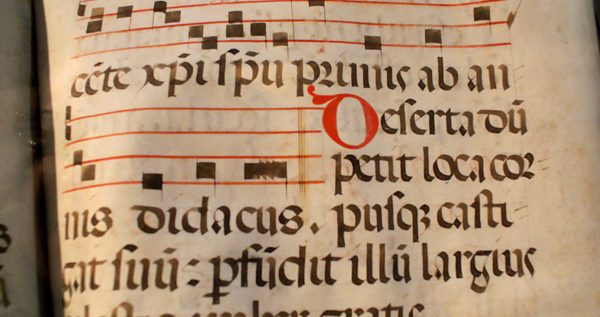 cc̄te xp̄i sp̄u primis ab an
Deserta dū
petit loca cor
nis didacus. pusqꝫ casti
gat suū: pfūdit illū largius
gratie